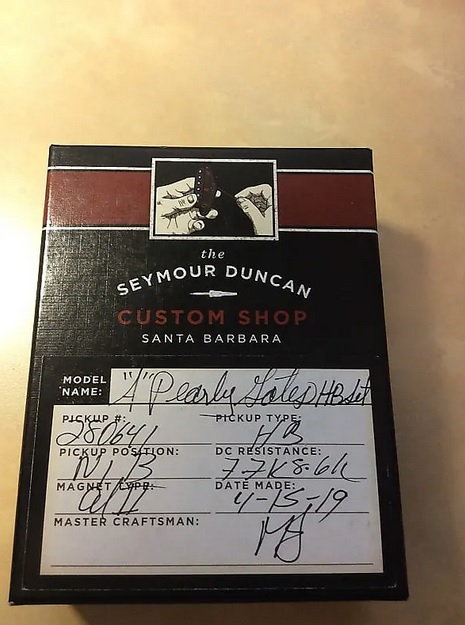 the
SEYMOUR DUNCAN
CUSTOM SHOP
SANTA BARBARA
MODEL NAME: "A" Pearly Gates HB Set
PICKUP #: PICKUP TYPE:
280641 HB
PICKUP POSITION: DC RESISTANCE:
N/B 7.7K 8.6K
MAGNET TYPE: DATE MADE:
AII 4-15-19
MASTER CRAFTSMAN:
MJ